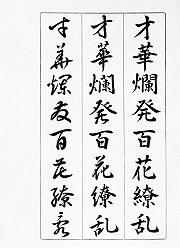 才華爛発百花繚乱
才華爛発百花繚乱
才華爛発百花繚乱